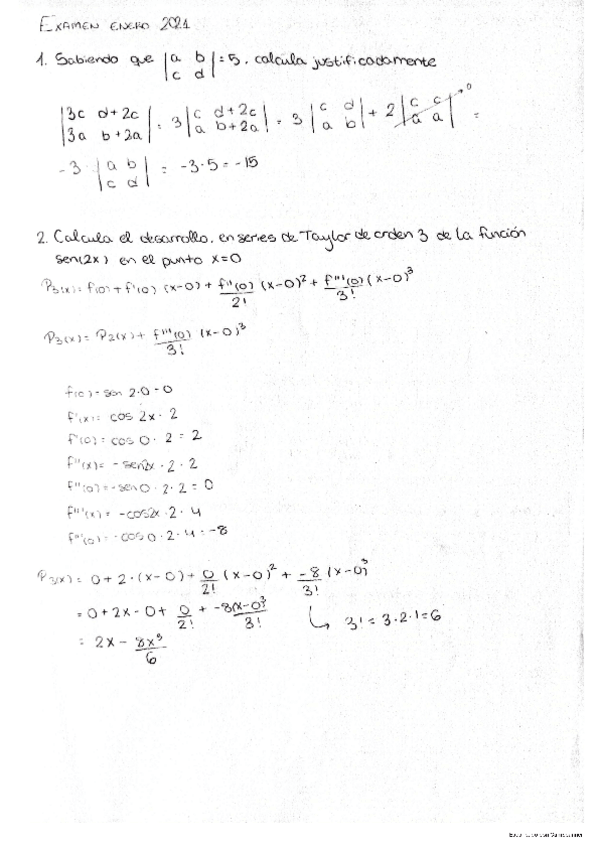 EXAMEN ENERO 2021
1. Sabiendo que |a b; c d| = 5, calcula justificadamente
|3c d+2c; 3a b+2a| = 3 |c d+2c; a b+2a| = 3 |c d; a b| + 2 |c c; a a|→0 =
-3 · |a b; c d| = -3·5 = -15
2. Calcula el desarrollo, en series de Taylor de orden 3 de la función
sen(2x) en el punto x=0
P₃(x) = f(0) + f'(0) (x-0) + f''(0)/2! (x-0)² + f'''(0)/3! (x-0)³
P₃(x) = P₂(x) + f'''(0)/3! (x-0)³
f(0) = sen 2·0 = 0
f'(x) = cos 2x · 2
f'(0) = cos 0 · 2 = 2
f''(x) = - sen2x · 2 · 2
f''(0) = - sen 0 · 2 · 2 = 0
f'''(x) = -cos2x · 2 · 4
f'''(0) = -cos 0 · 2 · 4 = -8
P₃(x) = 0 + 2 · (x-0) + 0/2! (x-0)² + -8/3! (x-0)³
= 0 + 2x - 0 + 0/2! + -8(x-0)³/3! ↳ 3! = 3·2·1 = 6
= 2x - 8x³/6